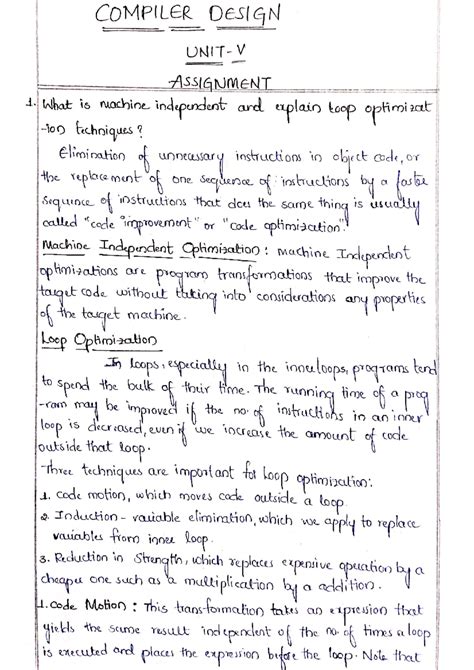 COMPILER DESIGN
UNIT-V
ASSIGNMENT
1. What is machine independent and explain loop optimizat
-ion techniques?
Elimination of unnecessary instructions in object code, or
the replacement of one sequence of instructions by a faster
sequence of instructions that does the same thing is usually
called "code improvement" or "code optimization".
Machine Independent Optimization: Machine Independent
optimizations are program transformations that improve the
target code without taking into considerations any properties
of the target machine.
Loop Optimization
In loops, especially in the inner loops, programs tend
to spend the bulk of their time. The running time of a prog
-ram may be improved if the no. of instructions in an inner
loop is decreased, even if we increase the amount of code
outside that loop.
Three techniques are important for loop optimization:
1. code motion, which moves code outside a loop.
2. Induction - variable elimination, which we apply to replace
variables from inner loop.
3. Reduction in strength, which replaces expensive operation by a
cheaper one such as a multiplication by a addition.
1. Code Motion: This transformation takes an expression that
yields the same result independent of the no. of times a loop
is executed and places the expression before the loop. Note that